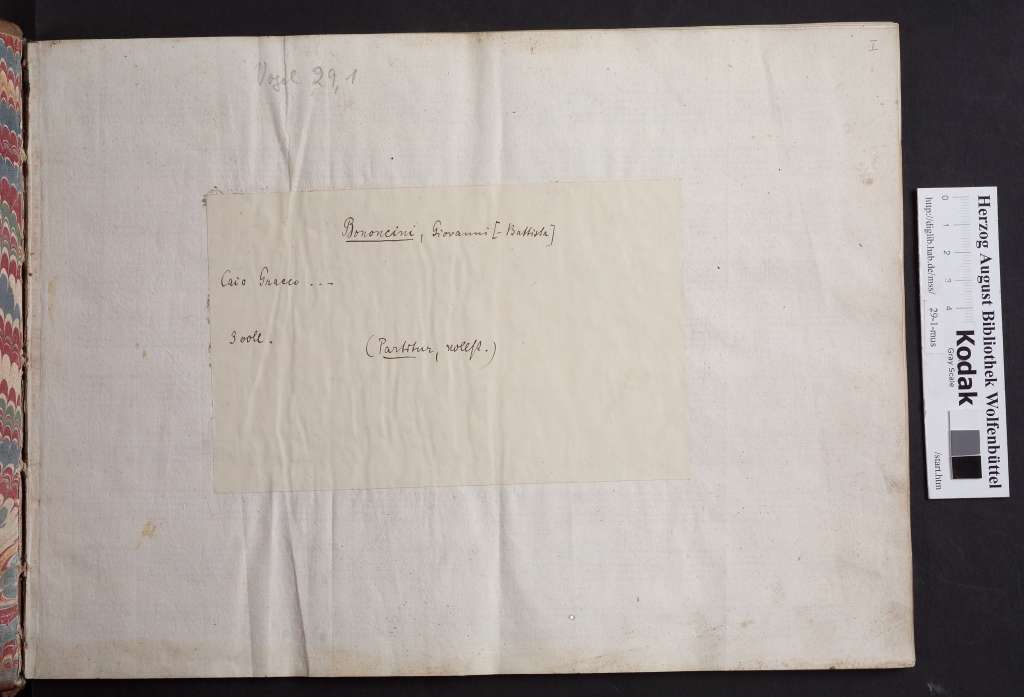 Vogel 29,1
I
Bononcini, Giovanni [- Battista]
Caio Gracco ...
3 voll.
(Partitur, vollst.)
Herzog August Bibliothek Wolfenbüttel
0 1 2 3 4
Kodak
Gray Scale
http://diglib.hab.de/mss/ 29-1-mus /start.htm